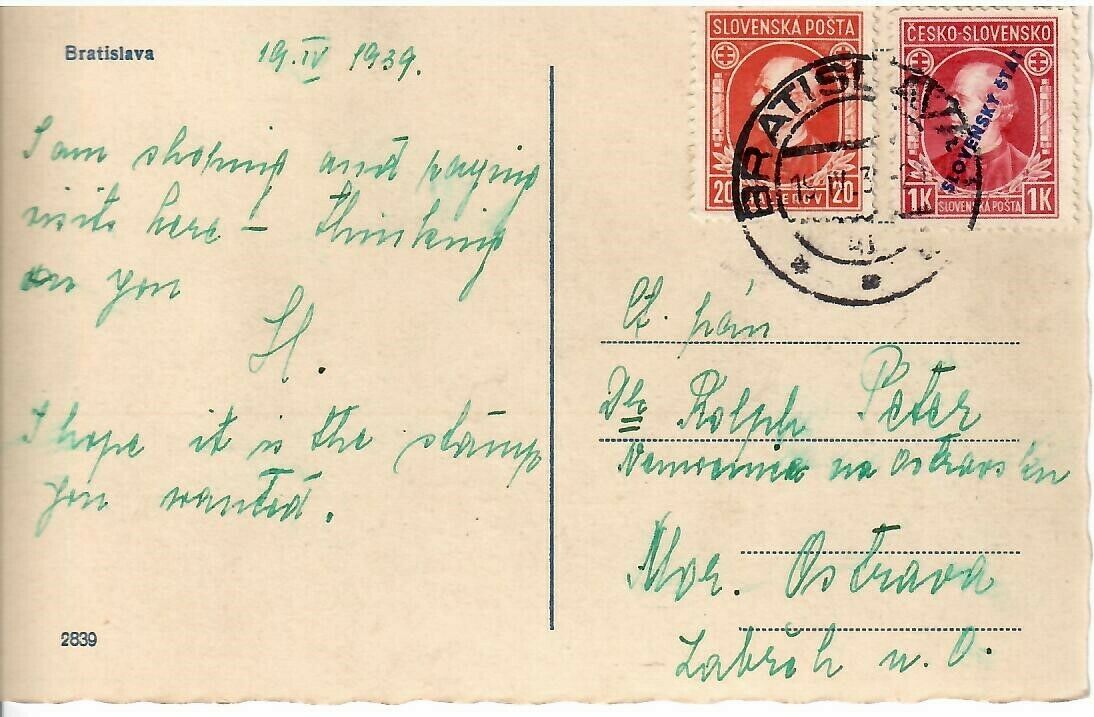 Bratislava
19.IV 1939.
I am shoping and paying
visits here – thinking
on you
H.
I hope it is the stamp
you wanted.
2839
SLOVENSKÁ POŠTA
20 20
ČESKO-SLOVENSKO
SLOVENSKÝ ŠTÁT
1K SLOVENSKÁ POŠTA 1K
BRATISLAVA
Ct. pán
Rolph Peter
na Ostravsku
Mor. Ostrava
Zábřeh n. O.